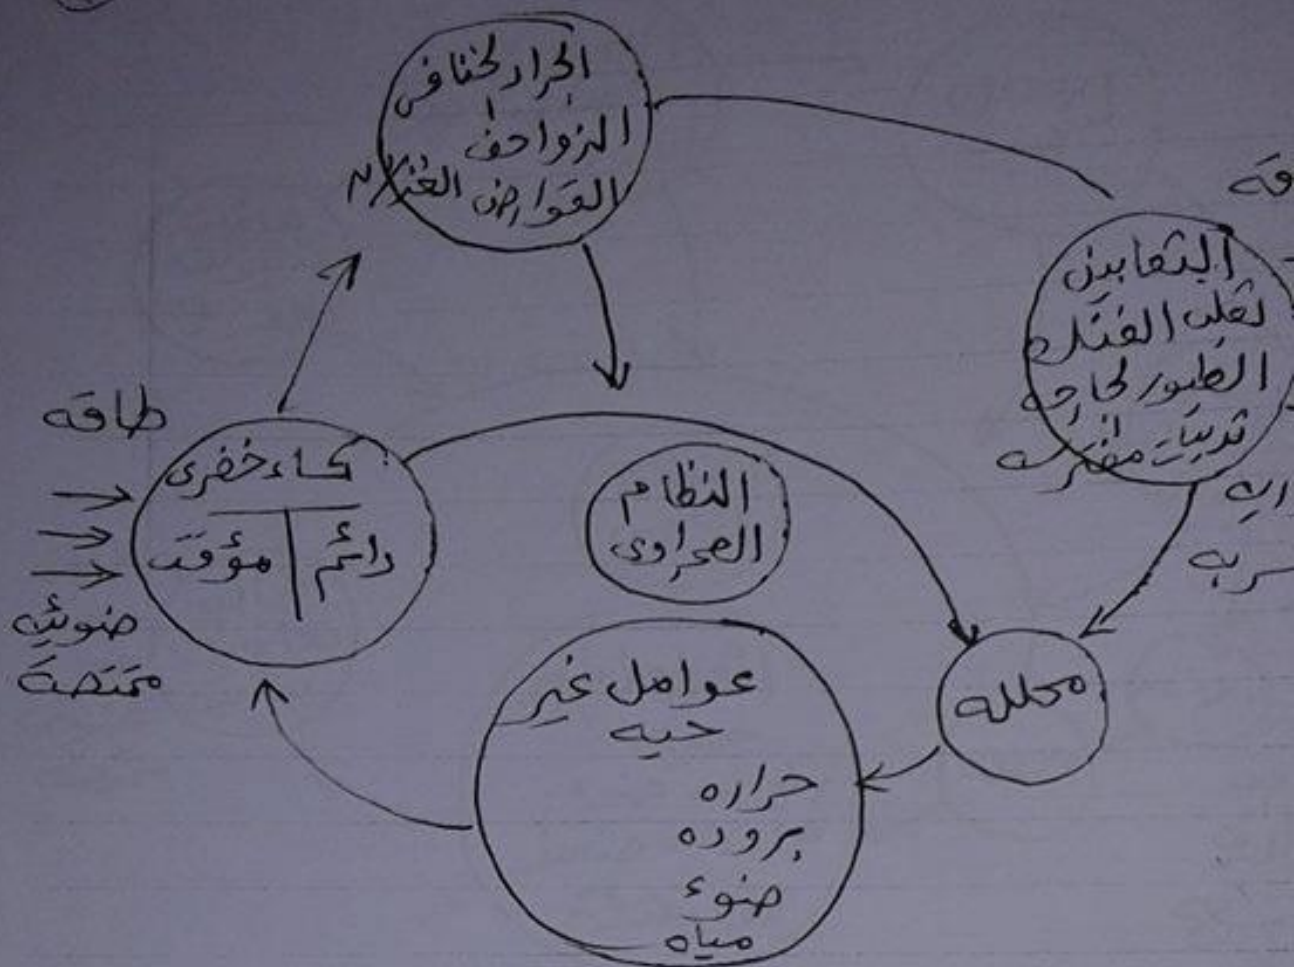 الجراد الخنافس
الزواحف
القوارض الغزلان
الثعابين
ثعلب الفنك
الطيور الجارحه
ثدييات مفترسه
طاقه
ضوئيه
ممتصة
كساء خضرى
دائم
مؤقت
النظام
الصحراوى
محلله
عوامل غير
حيه
حراره
بروده
ضوء
مياه